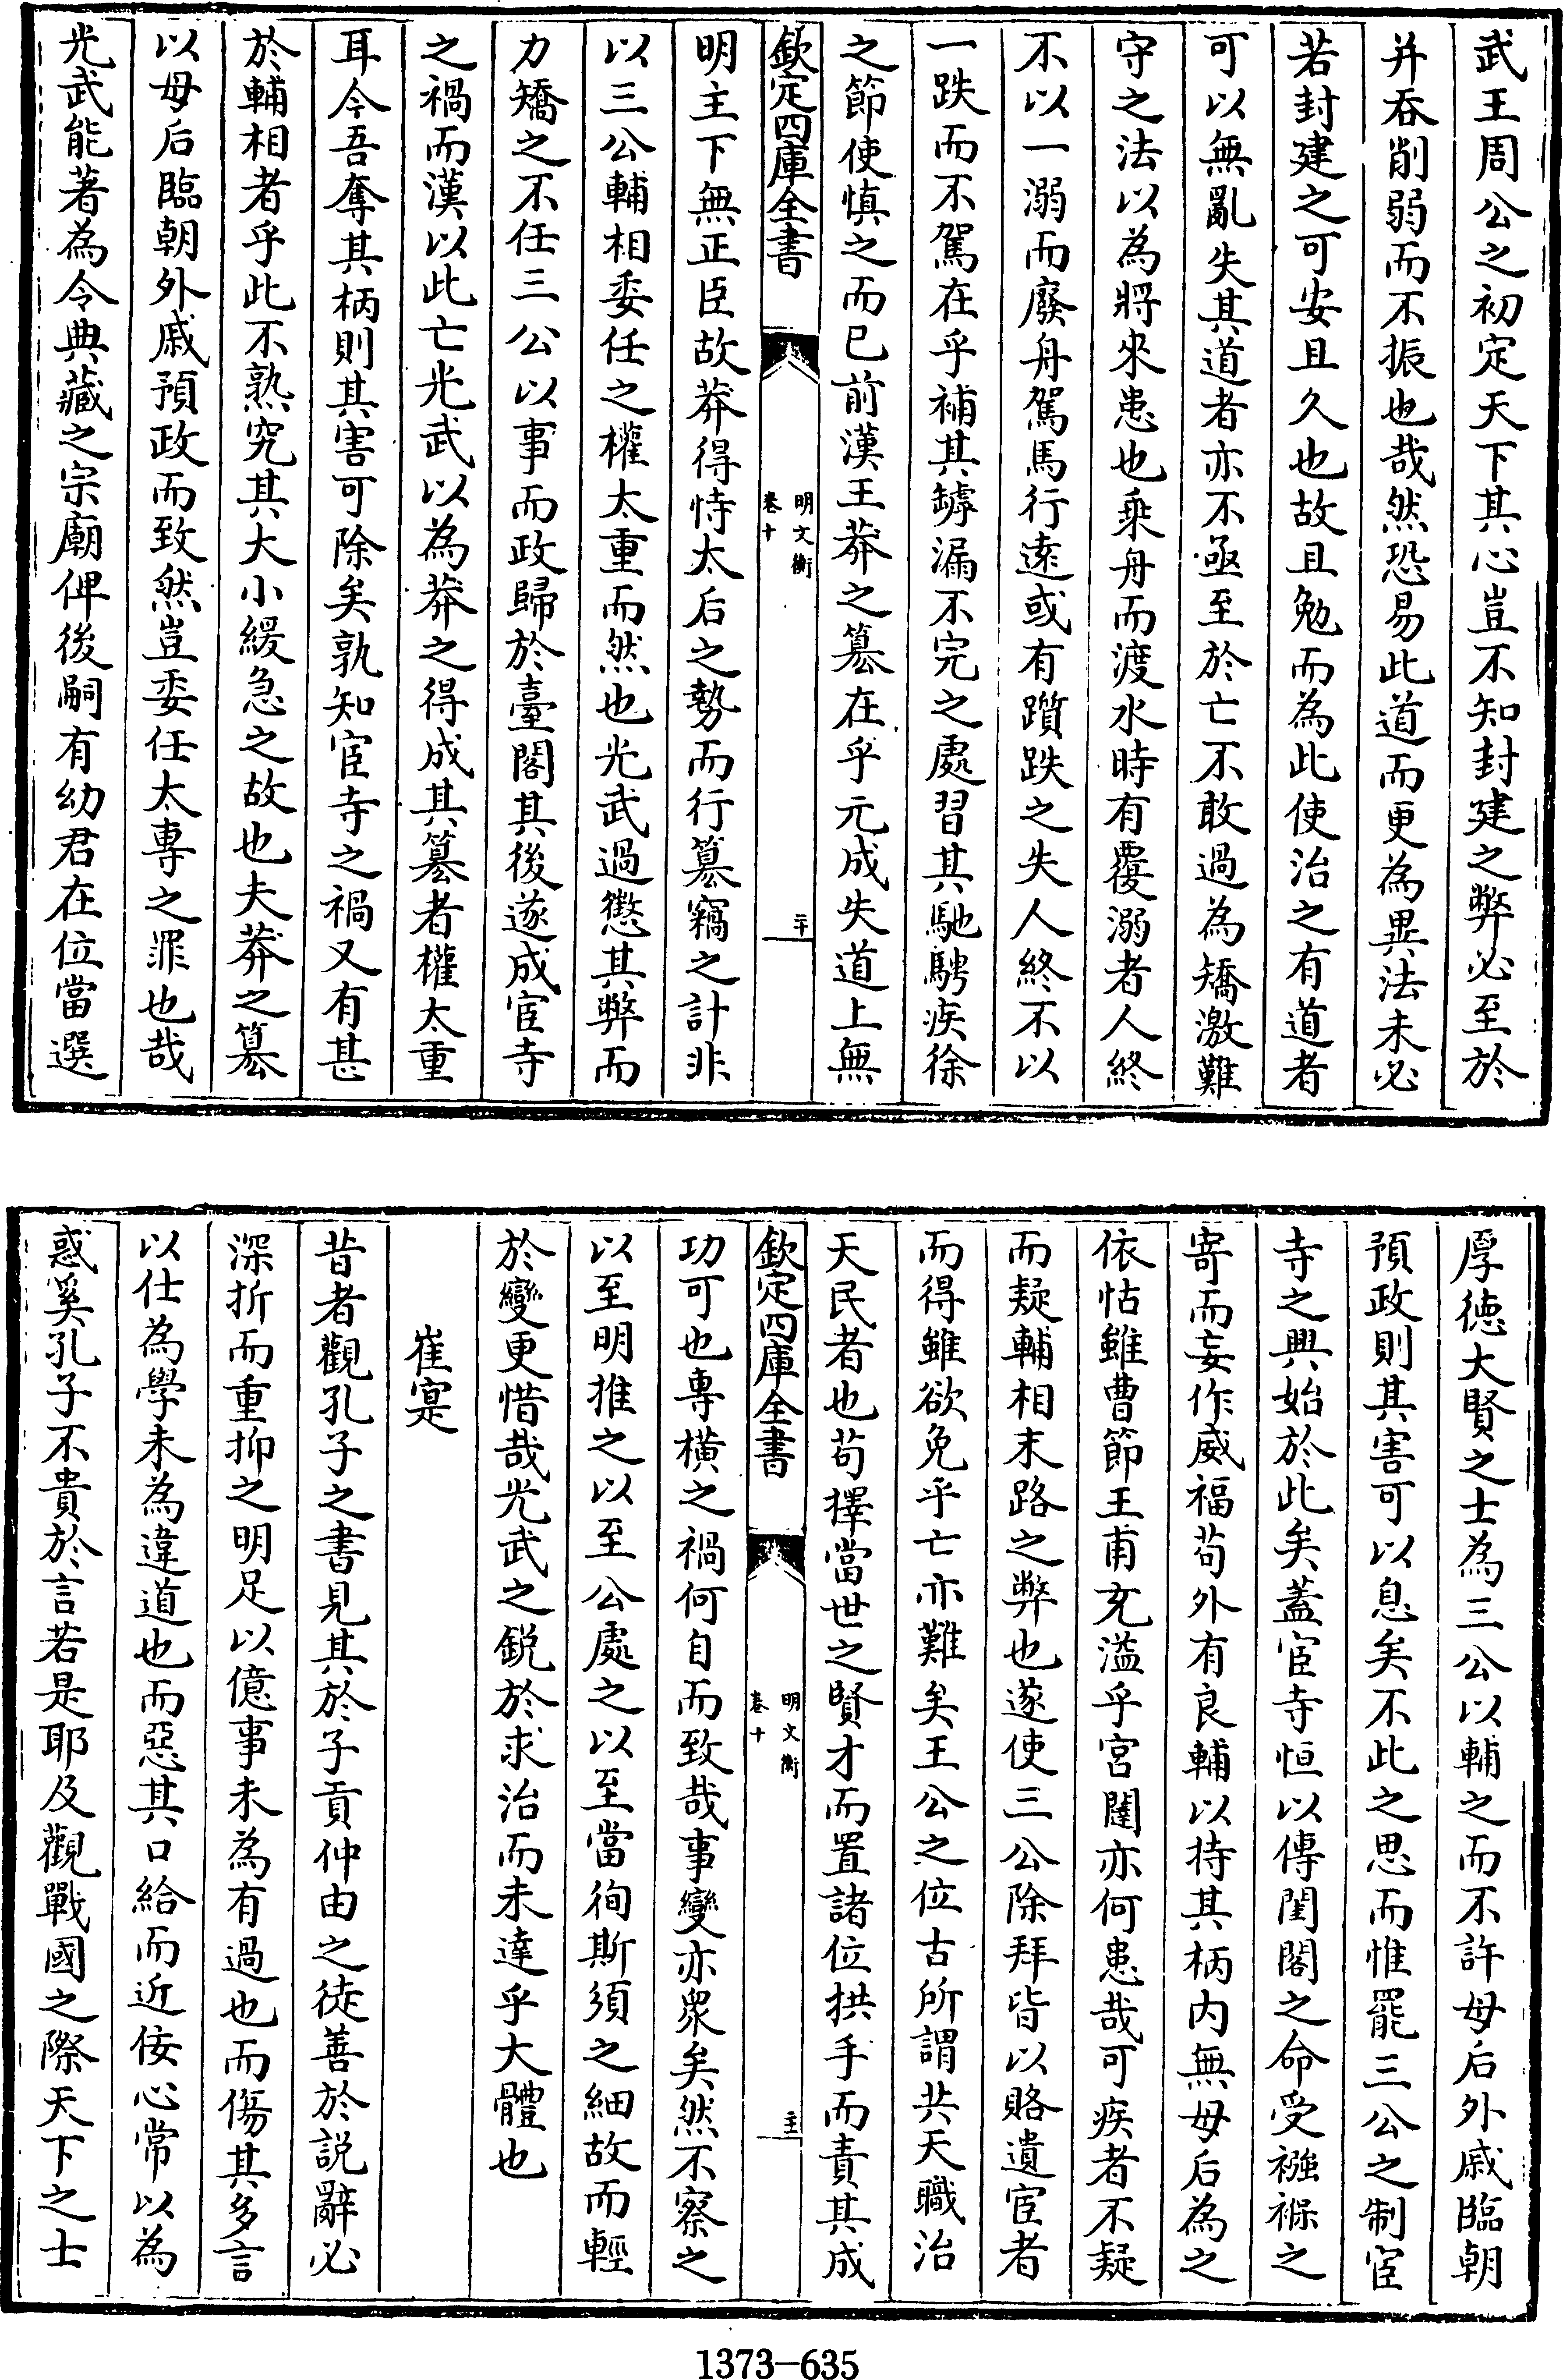 武王周公之初定天下其心豈不知封建之弊必至於
并吞削弱而不振也哉然恐易此道而更為異法未必
若封建之可安且久也故且勉而為此使治之有道者
可以無亂失其道者亦不亟至於亡不敢過為矯激難
守之法以為將來患也乘舟而渡水時有覆溺者人終
不以一溺而廢舟駕馬行遠或有躓跌之失人終不以
一跌而不駕在乎補其罅漏不完之處習其馳騁疾徐
之節使慎之而已前漢王莽之簒在乎元成失道上無
欽定四庫全書
明文衡
卷十
二十
明主下無正臣故莽得恃太后之勢而行簒竊之計非
以三公輔相委任之權太重而然也光武過懲其弊而
力矯之不任三公以事而政歸於臺閣其後遂成宦寺
之禍而漢以此亡光武以為莽之得成其簒者權太重
耳今吾奪其柄則其害可除矣孰知宦寺之禍又有甚
於輔相者乎此不熟究其大小緩急之故也夫莽之簒
以母后臨朝外戚預政而致然豈委任太專之罪也哉
光武能著為令典藏之宗廟俾後嗣有幼君在位當選
厚德大賢之士為三公以輔之而不許母后外戚臨朝
預政則其害可以息矣不此之思而惟罷三公之制宦
寺之興始於此矣蓋宦寺恒以傳閨閣之命受襁褓之
寄而妄作威福苟外有良輔以持其柄内無母后為之
依怙雖曹節王甫充溢乎宮闥亦何患哉可疾者不疑
而疑輔相末路之弊也遂使三公除拜皆以賂遺宦者
而得雖欲免乎亡亦難矣王公之位古所謂共天職治
天民者也苟擇當世之賢才而置諸位拱手而責其成
欽定四庫全書
明文衡
卷十
二十一
功可也專横之禍何自而致哉事變亦衆矣然不察之
以至明推之以至公處之以至當徇斯須之細故而輕
於變更惜哉光武之鋭於求治而未達乎大體也
崔寔
昔者觀孔子之書見其於子貢仲由之徒善於説辭必
深折而重抑之明足以億事未為有過也而傷其多言
以仕為學未為違道也而惡其口給而近佞心常以為
惑奚孔子不貴於言若是耶及觀戰國之際天下之士
1373-635